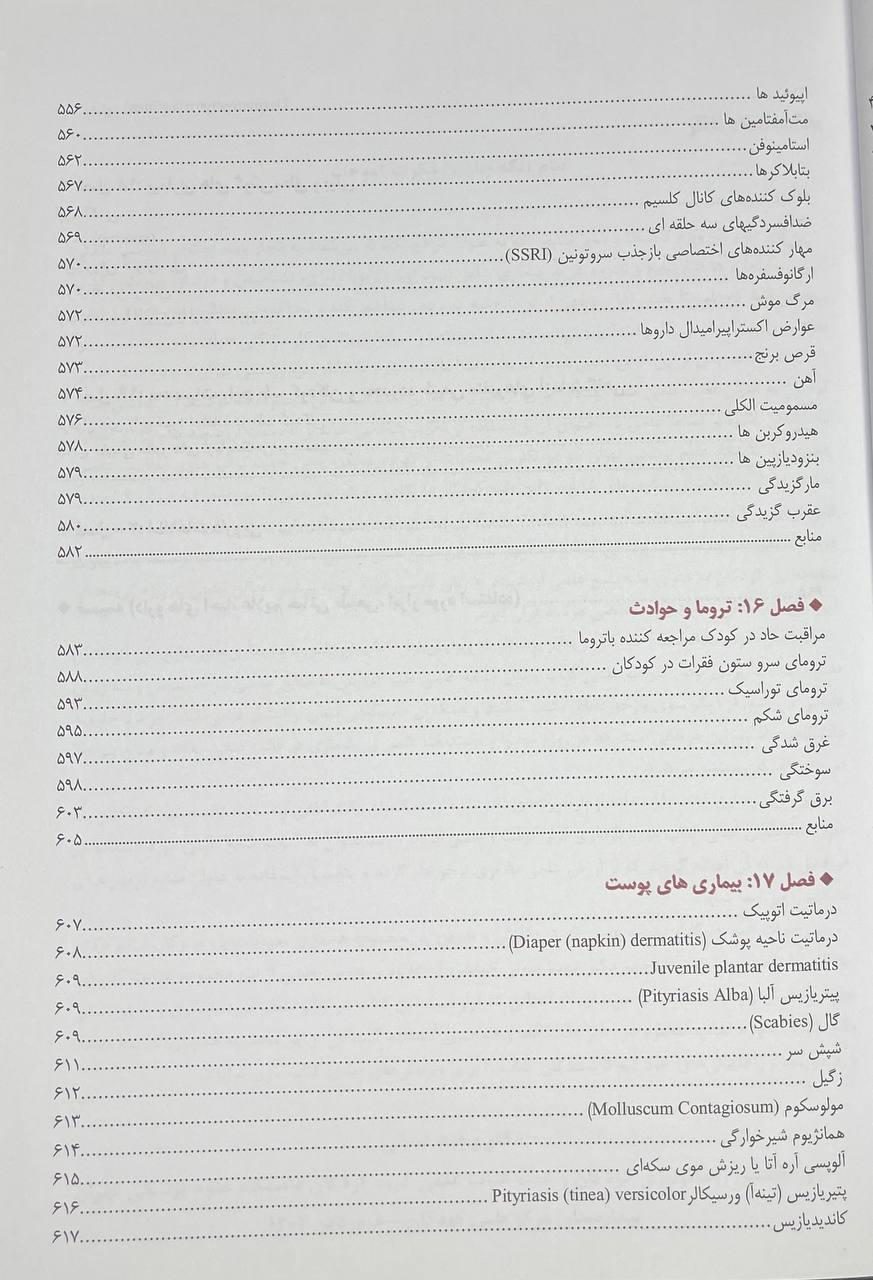 اپیوئید ها ..... ۵۵۶
مت‌آمفتامین ها ..... ۵۶۰
استامینوفن ..... ۵۶۲
بتابلاکرها ..... ۵۶۷
بلوک کننده‌های کانال کلسیم ..... ۵۶۸
ضدافسردگیهای سه حلقه ای ..... ۵۶۹
مهار کننده‌های اختصاصی بازجذب سروتونین (SSRI) ..... ۵۷۰
ارگانوفسفره‌ها ..... ۵۷۰
مرگ موش ..... ۵۷۲
عوارض اکستراپیرامیدال داروها ..... ۵۷۲
قرص برنج ..... ۵۷۳
آهن ..... ۵۷۴
مسمومیت الکلی ..... ۵۷۶
هیدروکربن ها ..... ۵۷۸
بنزودیازپین ها ..... ۵۷۹
مارگزیدگی ..... ۵۷۹
عقرب گزیدگی ..... ۵۸۰
منابع ..... ۵۸۲
◆ فصل ۱۶: تروما و حوادث
مراقبت حاد در کودک مراجعه کننده باتروما ..... ۵۸۳
ترومای سرو ستون فقرات در کودکان ..... ۵۸۸
ترومای توراسیک ..... ۵۹۳
ترومای شکم ..... ۵۹۵
غرق شدگی ..... ۵۹۷
سوختگی ..... ۵۹۸
برق گرفتگی ..... ۶۰۳
منابع ..... ۶۰۵
◆ فصل ۱۷: بیماری های پوست
درماتیت اتوپیک ..... ۶۰۷
درماتیت ناحیه پوشک (Diaper (napkin) dermatitis) ..... ۶۰۸
Juvenile plantar dermatitis ..... ۶۰۹
پیتریازیس آلبا (Pityriasis Alba) ..... ۶۰۹
گال (Scabies) ..... ۶۰۹
شپش سر ..... ۶۱۱
زگیل ..... ۶۱۲
مولوسکوم (Molluscum Contagiosum) ..... ۶۱۳
همانژیوم شیرخوارگی ..... ۶۱۴
آلوپسی آره آتا یا ریزش موی سکه‌ای ..... ۶۱۵
پتیریازیس (تینه‌آ) ورسیکالر Pityriasis (tinea) versicolor ..... ۶۱۶
کاندیدیازیس ..... ۶۱۷